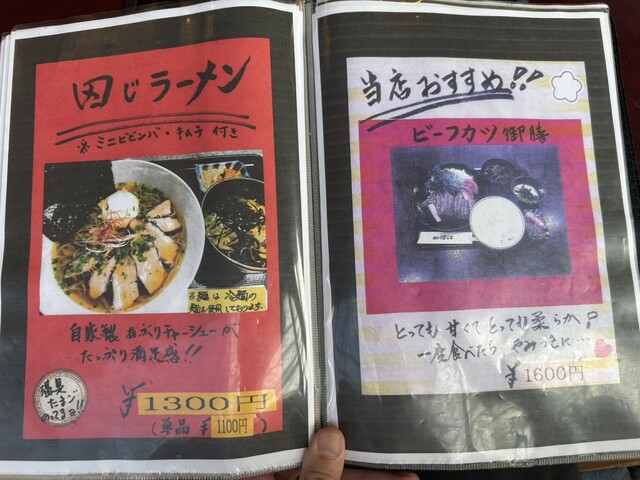 因じラーメン
※ミニビビンバ・キムチ 付き
名麺は 冷麺の
麺を使用しております。
自家製 あぶりチャーシューが
たっぷり満足感!!
温泉
たまご
のってます!!
¥1300円
(単品 ¥1100円)
当店おすすめ!!
ビーフカツ御膳
とっても 甘くて とっても柔らか!
一度食べたら やみつきに…
¥1600円